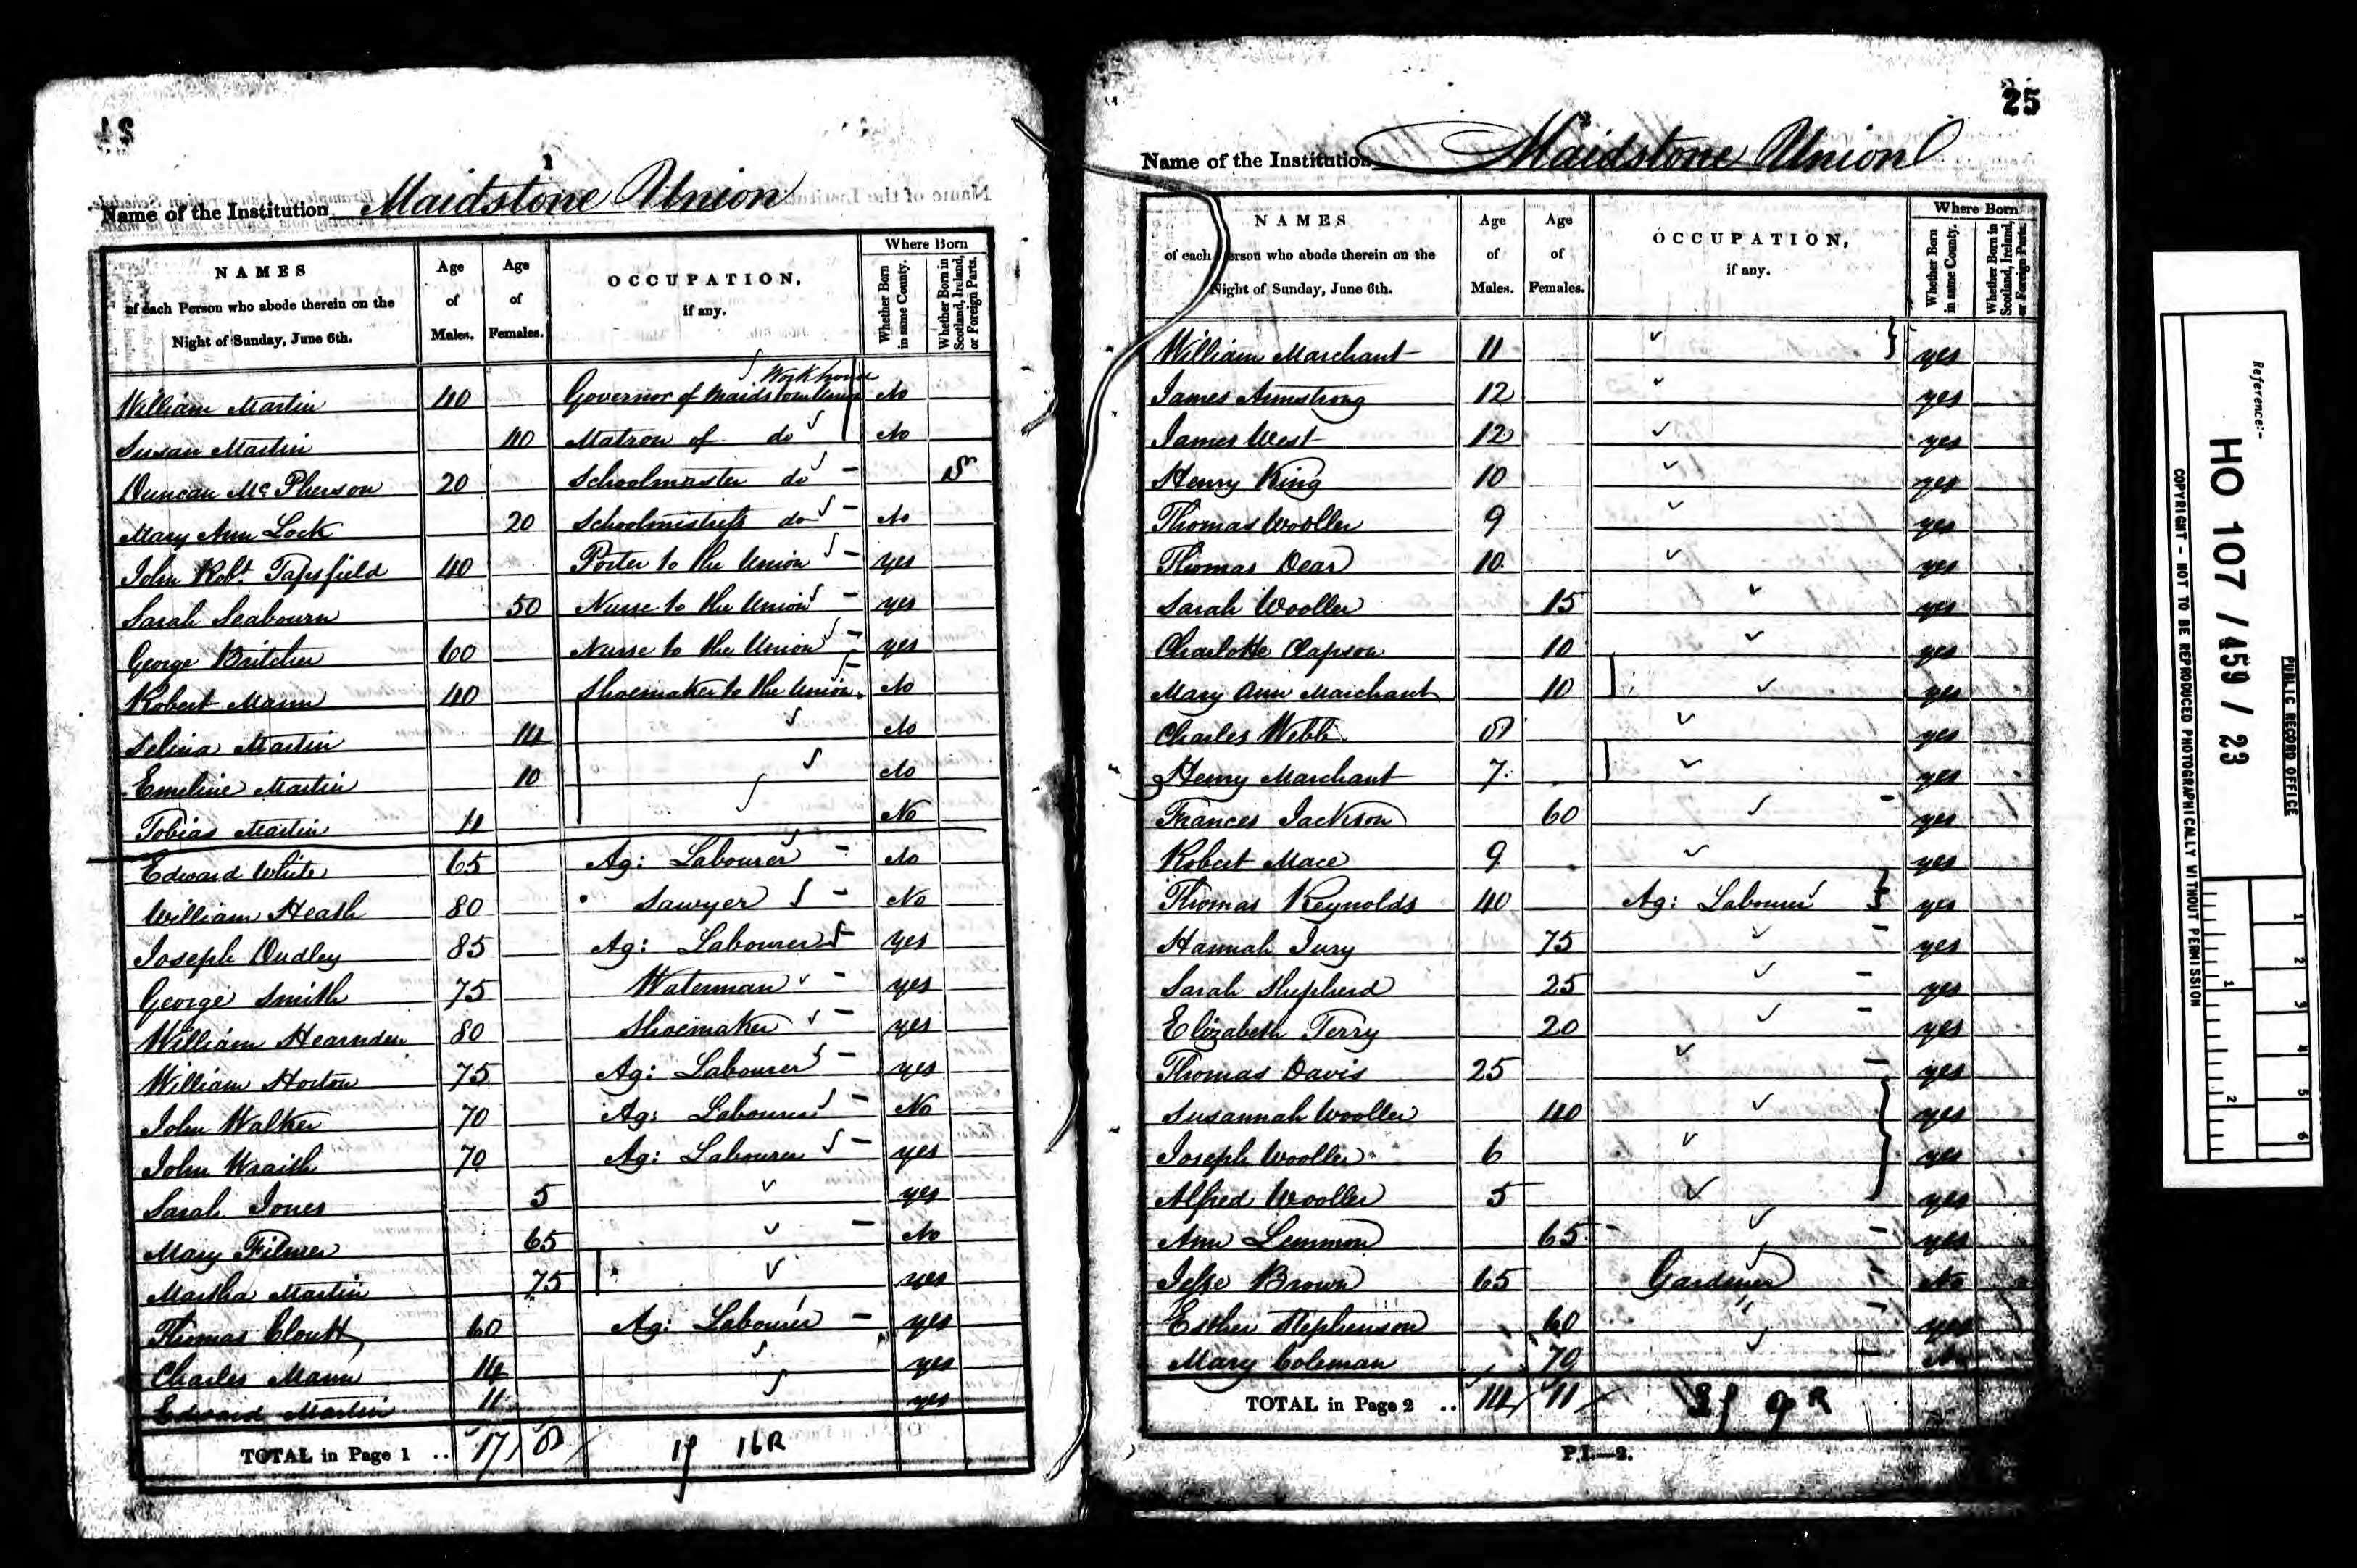 1
Name of the Institution Maidstone Union
NAMES of each Person who abode therein on the Night of Sunday, June 6th.
Age of Males.
Age of Females.
OCCUPATION, if any.
Where Born
Whether Born in same County.
Whether Born in Scotland, Ireland, or Foreign Parts.
Workhouse
William Martin 40 Governor of Maidstone Union No
Susan Martin 40 Matron of do No
Duncan Mc Pherson 20 Schoolmaster do S
Mary Ann Lock 20 Schoolmistress do No
John Robt. Tapsfield 40 Porter to the Union yes
Sarah Seabourn 50 Nurse to the Union yes
George Britcher 60 Nurse to the Union yes
Robert Mann 40 Shoemaker to the Union No
Selina Martin 14 No
Emeline Martin 10 No
Tobias Martin 11 No
Edward White 65 Ag: Labourer No
William Heath 80 Sawyer No
Joseph Dudley 85 Ag: Labourer yes
George Smith 75 Waterman yes
William Hearnden 80 Shoemaker yes
William Horton 75 Ag: Labourer yes
John Walker 70 Ag: Labourer No
John Wraith 70 Ag: Labourer yes
Sarah Jones 5 yes
Mary Filmer 65 No
Martha Martin 75 yes
Thomas Cloutt 60 Ag: Labourer yes
Charles Mann 14 yes
Edward Martin 11 yes
TOTAL in Page 1 .. 17 8 16R
25
2
Name of the Institution Maidstone Union
NAMES of each Person who abode therein on the Night of Sunday, June 6th.
Age of Males.
Age of Females.
OCCUPATION, if any.
Where Born
Whether Born in same County.
Whether Born in Scotland, Ireland, or Foreign Parts.
William Marchant 11 yes
James Armstrong 12 yes
James West 12 yes
Henry King 10 yes
Thomas Wooller 9 yes
Thomas Dear 10 yes
Sarah Wooller 15 yes
Charlotte Clapson 10 yes
Mary Ann Marchant 10 yes
Charles Webb 8 yes
Henry Marchant 7 yes
Frances Jackson 60 yes
Robert Mace 9 yes
Thomas Reynolds 40 Ag: Labourer yes
Hannah Jury 75 yes
Sarah Shepherd 25 yes
Elizabeth Terry 20 yes
Thomas Davis 25 yes
Susannah Wooller 40 yes
Joseph Wooller 6 yes
Alfred Wooller 5 yes
Ann Lemmon 65 yes
Jesse Brown 65 Gardener No
Esther Stephenson 60 yes
Mary Coleman 70
TOTAL in Page 2 .. 14 11 9 R
P.I.—2.
Reference:-
HO 107 / 459 / 23
PUBLIC RECORD OFFICE
COPYRIGHT - NOT TO BE REPRODUCED PHOTOGRAPHICALLY WITHOUT PERMISSION
1 2 3 4 5 6
1 2